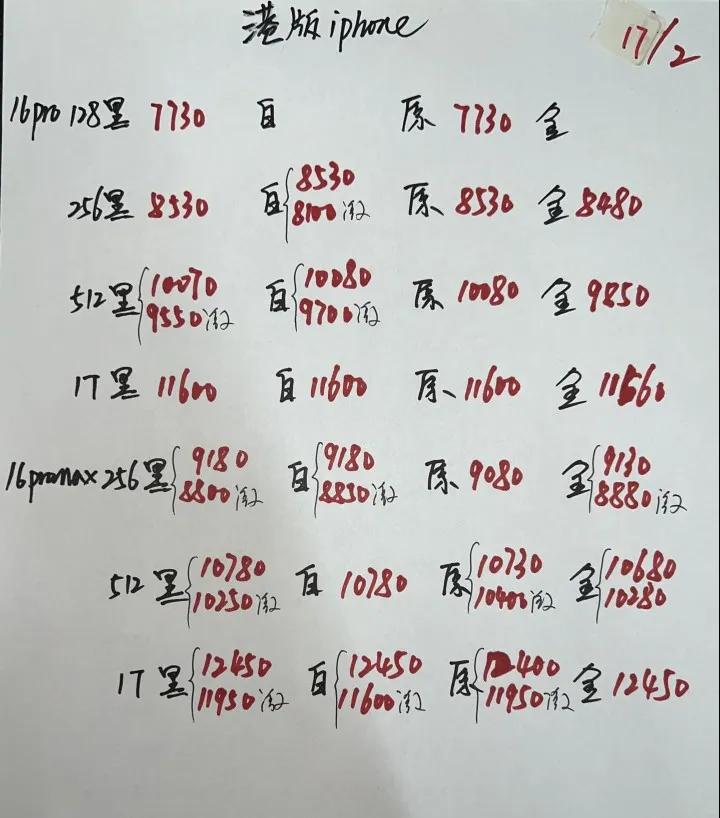 港版iphone
17/2
16pro 128黑 7730 白 原 7730 金
256黑 8530 白 8530 8100激 原 8530 金 8480
512黑 10070 9550激 白 10080 9700激 原 10080 金 9850
1T黑 11600 白 11600 原 11600 金 11560
16promax 256黑 9180 8800激 白 9180 8830激 原 9080 金 9130 8880激
512黑 10780 10250激 白 10780 原 10730 10400激 金 10680 10280
1T黑 12450 11950激 白 12450 11600激 原 12400 11950激 金 12450